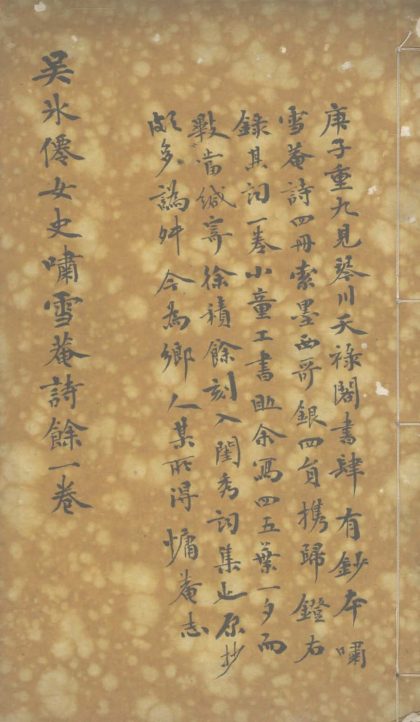 庚子重九見琴川天祿閣書肆有鈔本嘯
雪菴詩四冊索墨西哥銀四員攜歸鐙右
錄其詞一卷小童工書助余寫四五葉一夕而
當緘寄徐積餘刻入閨秀詞集也原抄
頗多譌舛今為鄉人某所得 慵菴志
吳氷僊女史嘯雪菴詩餘一卷